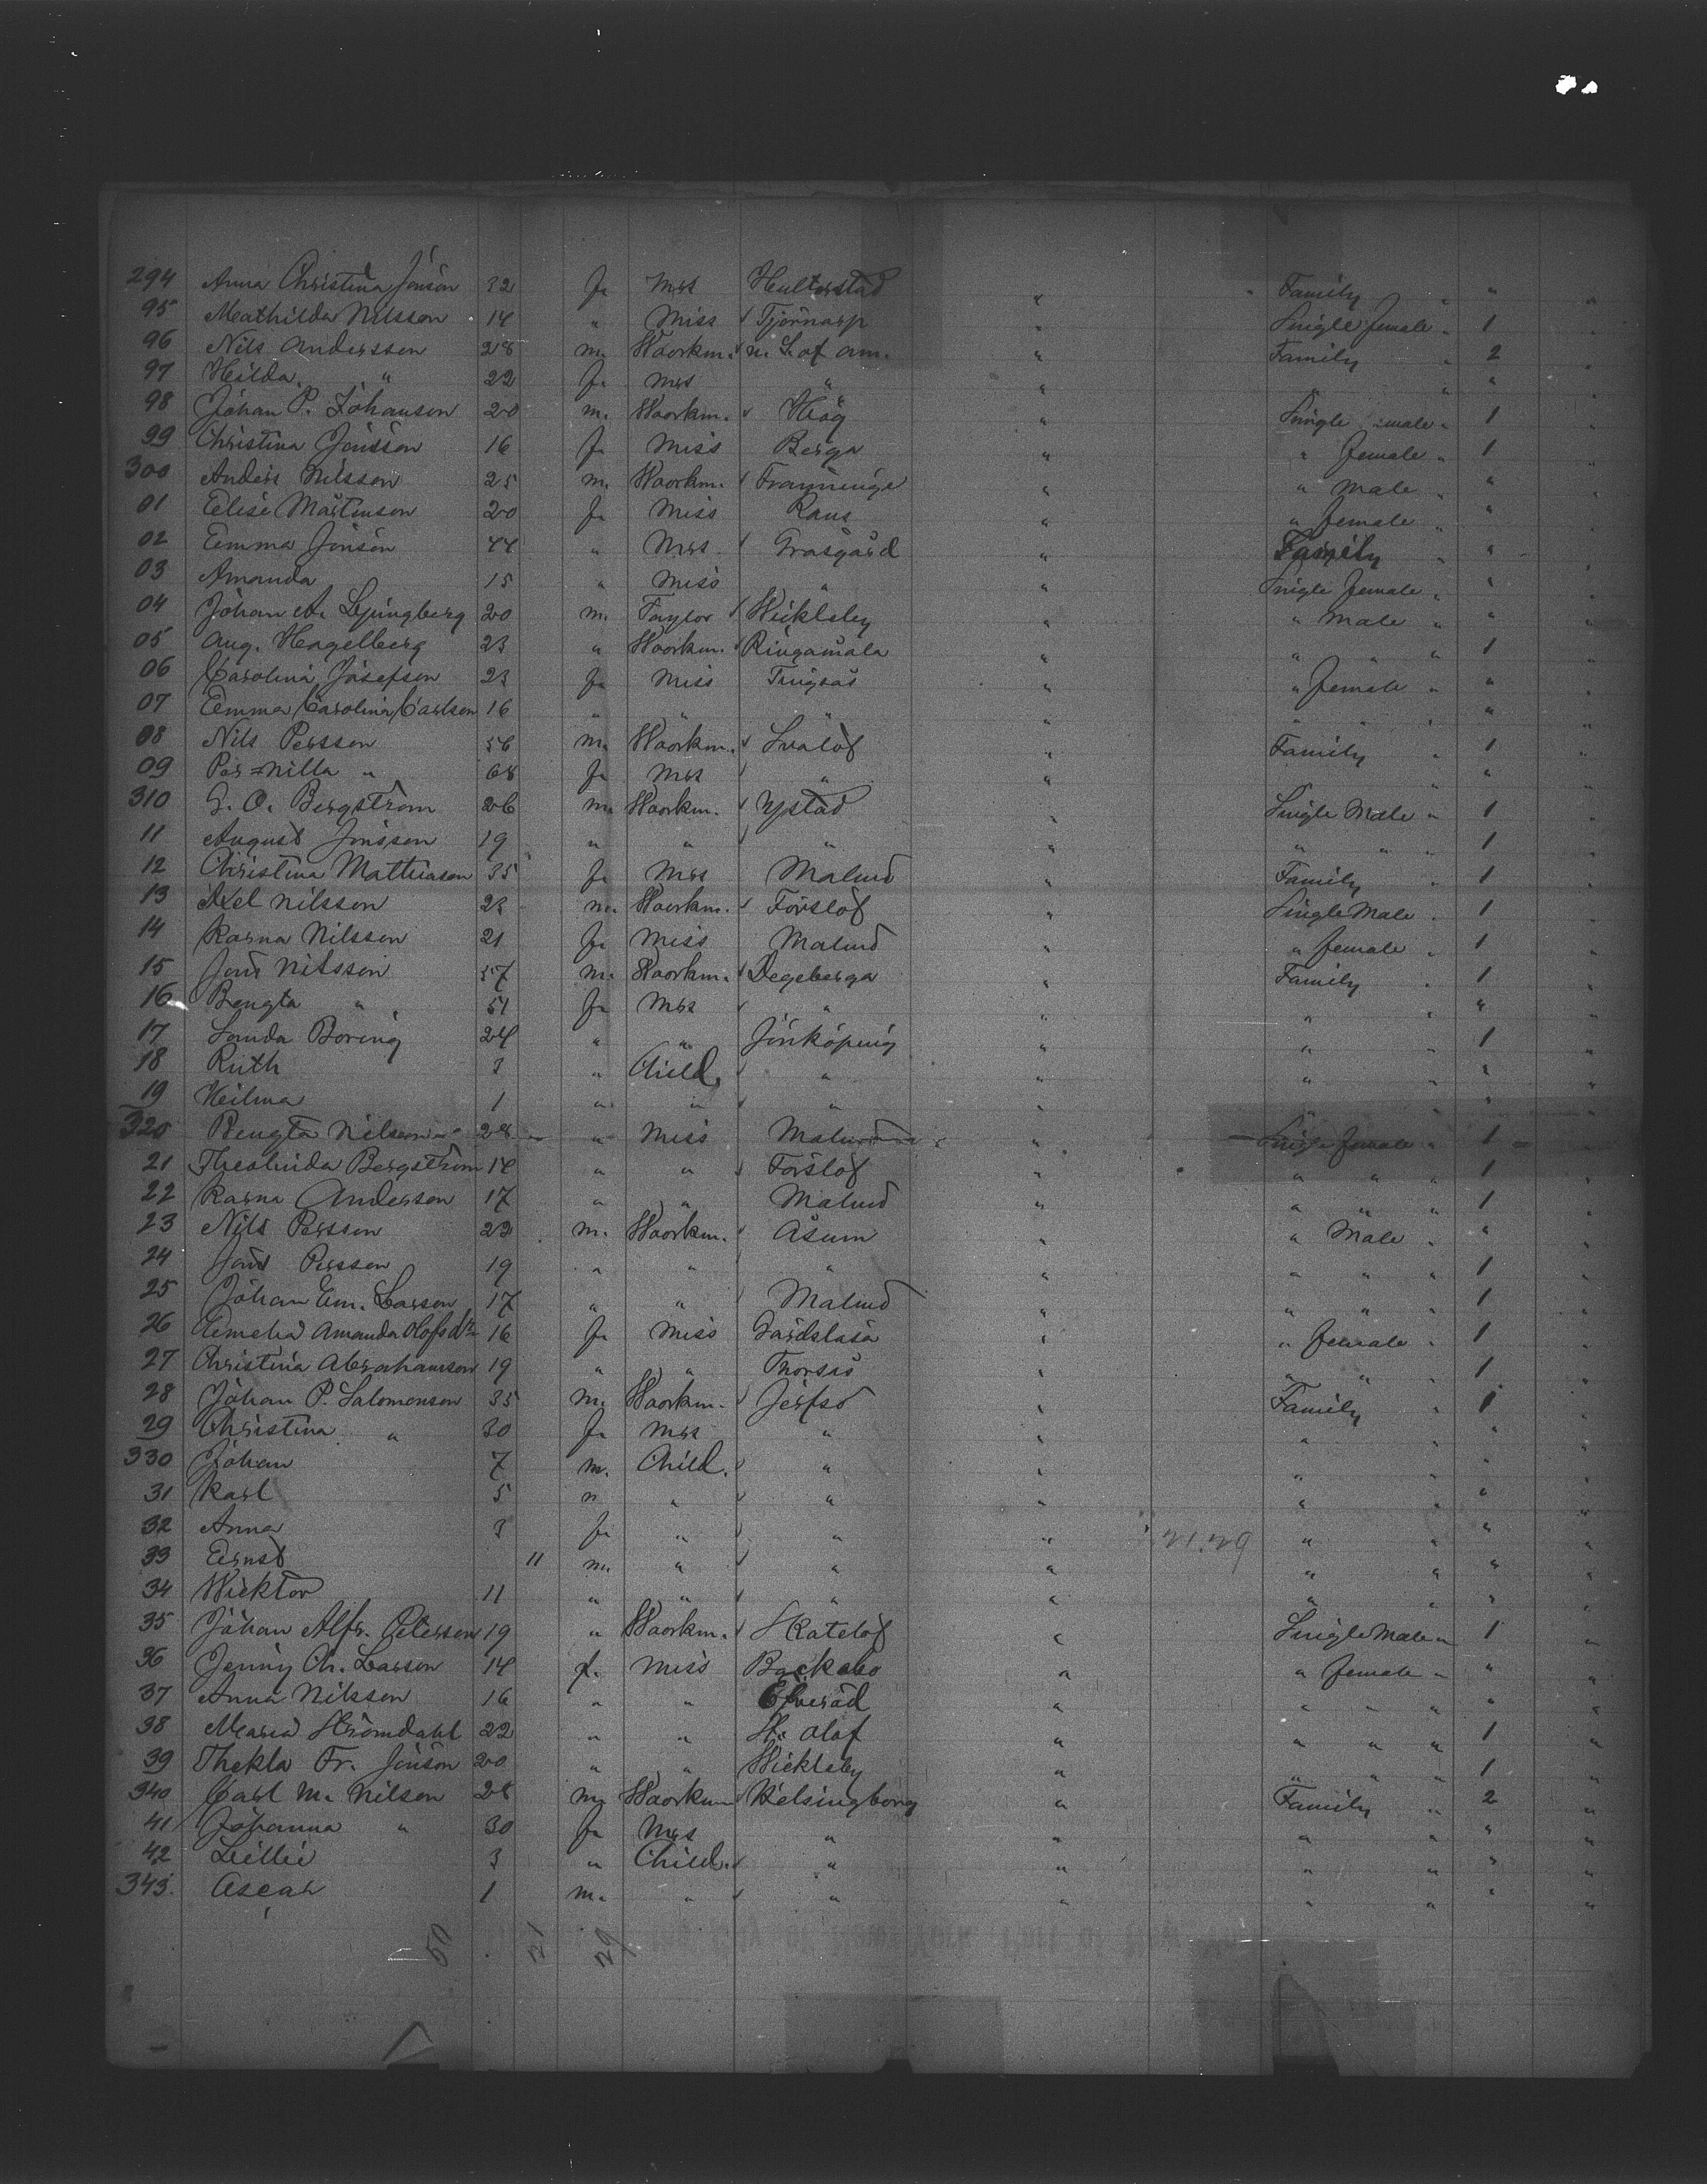 294 Anna Christina Jonson 32 f. Mrs Hulterstad " Family " " "
95 Mathilda Nilsson 14 " Miss Tjornarp " Single female " 1 "
96 Nils Andersson 28 m. Woorkm. " Family " 2 "
97 Hilda " 22 f. Mrs " " " " " "
98 Johan P. Johanson 20 m. Woorkm. Hög " Single male " 1 "
99 Christina Jonsson 16 f. Miss Berga " " female " 1 "
300 Anders Nilsson 25 m. Woorkm. Franninge " " Male " " "
01 Elise Martinson 20 f. Miss Raus " " female " " "
02 Emma Jonson 44 " Mrs. Grasgard " Family " " "
03 Amanda 15 " Miss " " Single female " " "
04 Johan A. Ljungberg 20 m. Taylor Wickleby " " Male " " "
05 Aug. Hagelberg 23 " Woorkm. Ringamala " " " " 1 "
06 Carolina Josefson 23 f. Miss Tingsas " " female " " "
07 Emma Carolina Carlson 16 " " " " " " " " "
08 Nils Persson 56 m. Woorkm. Svalöf " Family " 1 "
09 Per=nilla " 68 f. Mrs " " " " "
310 G. O. Bergström 26 m. Woorkm. Ystad " Single Male " 1 "
11 August Jonsson 19 " " " " " " " 1 "
12 Christina Mathiason 35 f. Mrs Malmö " Family " 1 "
13 Axel Nilsson 23 m. Woorkm. Förslof " Single Male " 1 "
14 Karna Nilsson 21 f. Miss Malmö " " female " 1 "
15 Jons Nilsson 57 m. Woorkm. Degeberga " Family " 1 "
16 Bengta " 51 f. Mrs " " " " " "
17 Boring 24 " " Jönköping " " " 1 "
18 Ruth 3 " Child. " " " " " "
19 Heilma 1 " " " " " " " "
320 Bengta Nilsson 28 " Miss Malmö " Single female " 1 "
21 Theolinda Bergström 14 " " Förslof " " " " 1 "
22 Karna Anderson 17 " " Malmö " " " " 1 "
23 Nils Persson 22 m. Woorkm. Åsum " " Male " " "
24 Jons Persson 19 " " " " " " " 1 "
25 Johan Em. Larson 17 " " Malmö " " " " 1 "
26 Amanda Olofsdtr 16 f. Miss Gardslasa " " female " 1 "
27 Christina Abrahamson 19 " " Thorsås " " " " 1 "
28 Johan P. Salomonson 35 m. Woorkm. Jerfsö " Family " 1 "
29 Christina " 30 f. Mrs " " " " " "
330 Johan 7 m. Child. " " " " " "
31 Karl 5 " " " " " " " "
32 Anna 3 f. " " " " " " "
33 Ernst 11 m. " " " " " " "
34 Wicktor 11 " " " " " " " "
35 Johan Alfr. Peterson 19 " Woorkm. Skatelöf " Single Male " 1 "
36 Jenny Ch. Larson 14 f. Miss Backabo " " female " " "
37 Anna Nilsson 16 " " Efverad " " " " " "
38 Maria Strömdahl 22 " " St. Olof " " " " 1 "
39 Thekla Fr. Jonson 20 " " Wickleby " " " " 1 "
340 Carl M. Nilson 28 m. Woorkm. Helsingborg " Family " 2 "
41 Johanna " 30 f. Mrs " " " " " "
42 Lillie 3 " Child. " " " " " "
343. Ascar 1 m. " " " " " " "
50 21 29